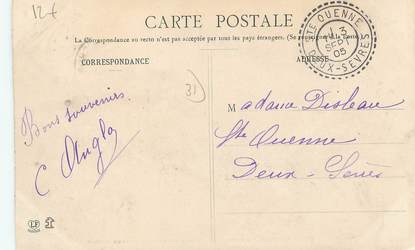 12€
CARTE POSTALE
La Correspondance au recto n'est pas acceptée par tous les pays étrangers. (Se renseigner à la Poste)
CORRESPONDANCE
ADRESSE
STE OUENNE
13
SEPT
05
DEUX-SÈVRES
31
Bons souvenirs
C
Madame
Ste Ouenne
Deux-Sèvres